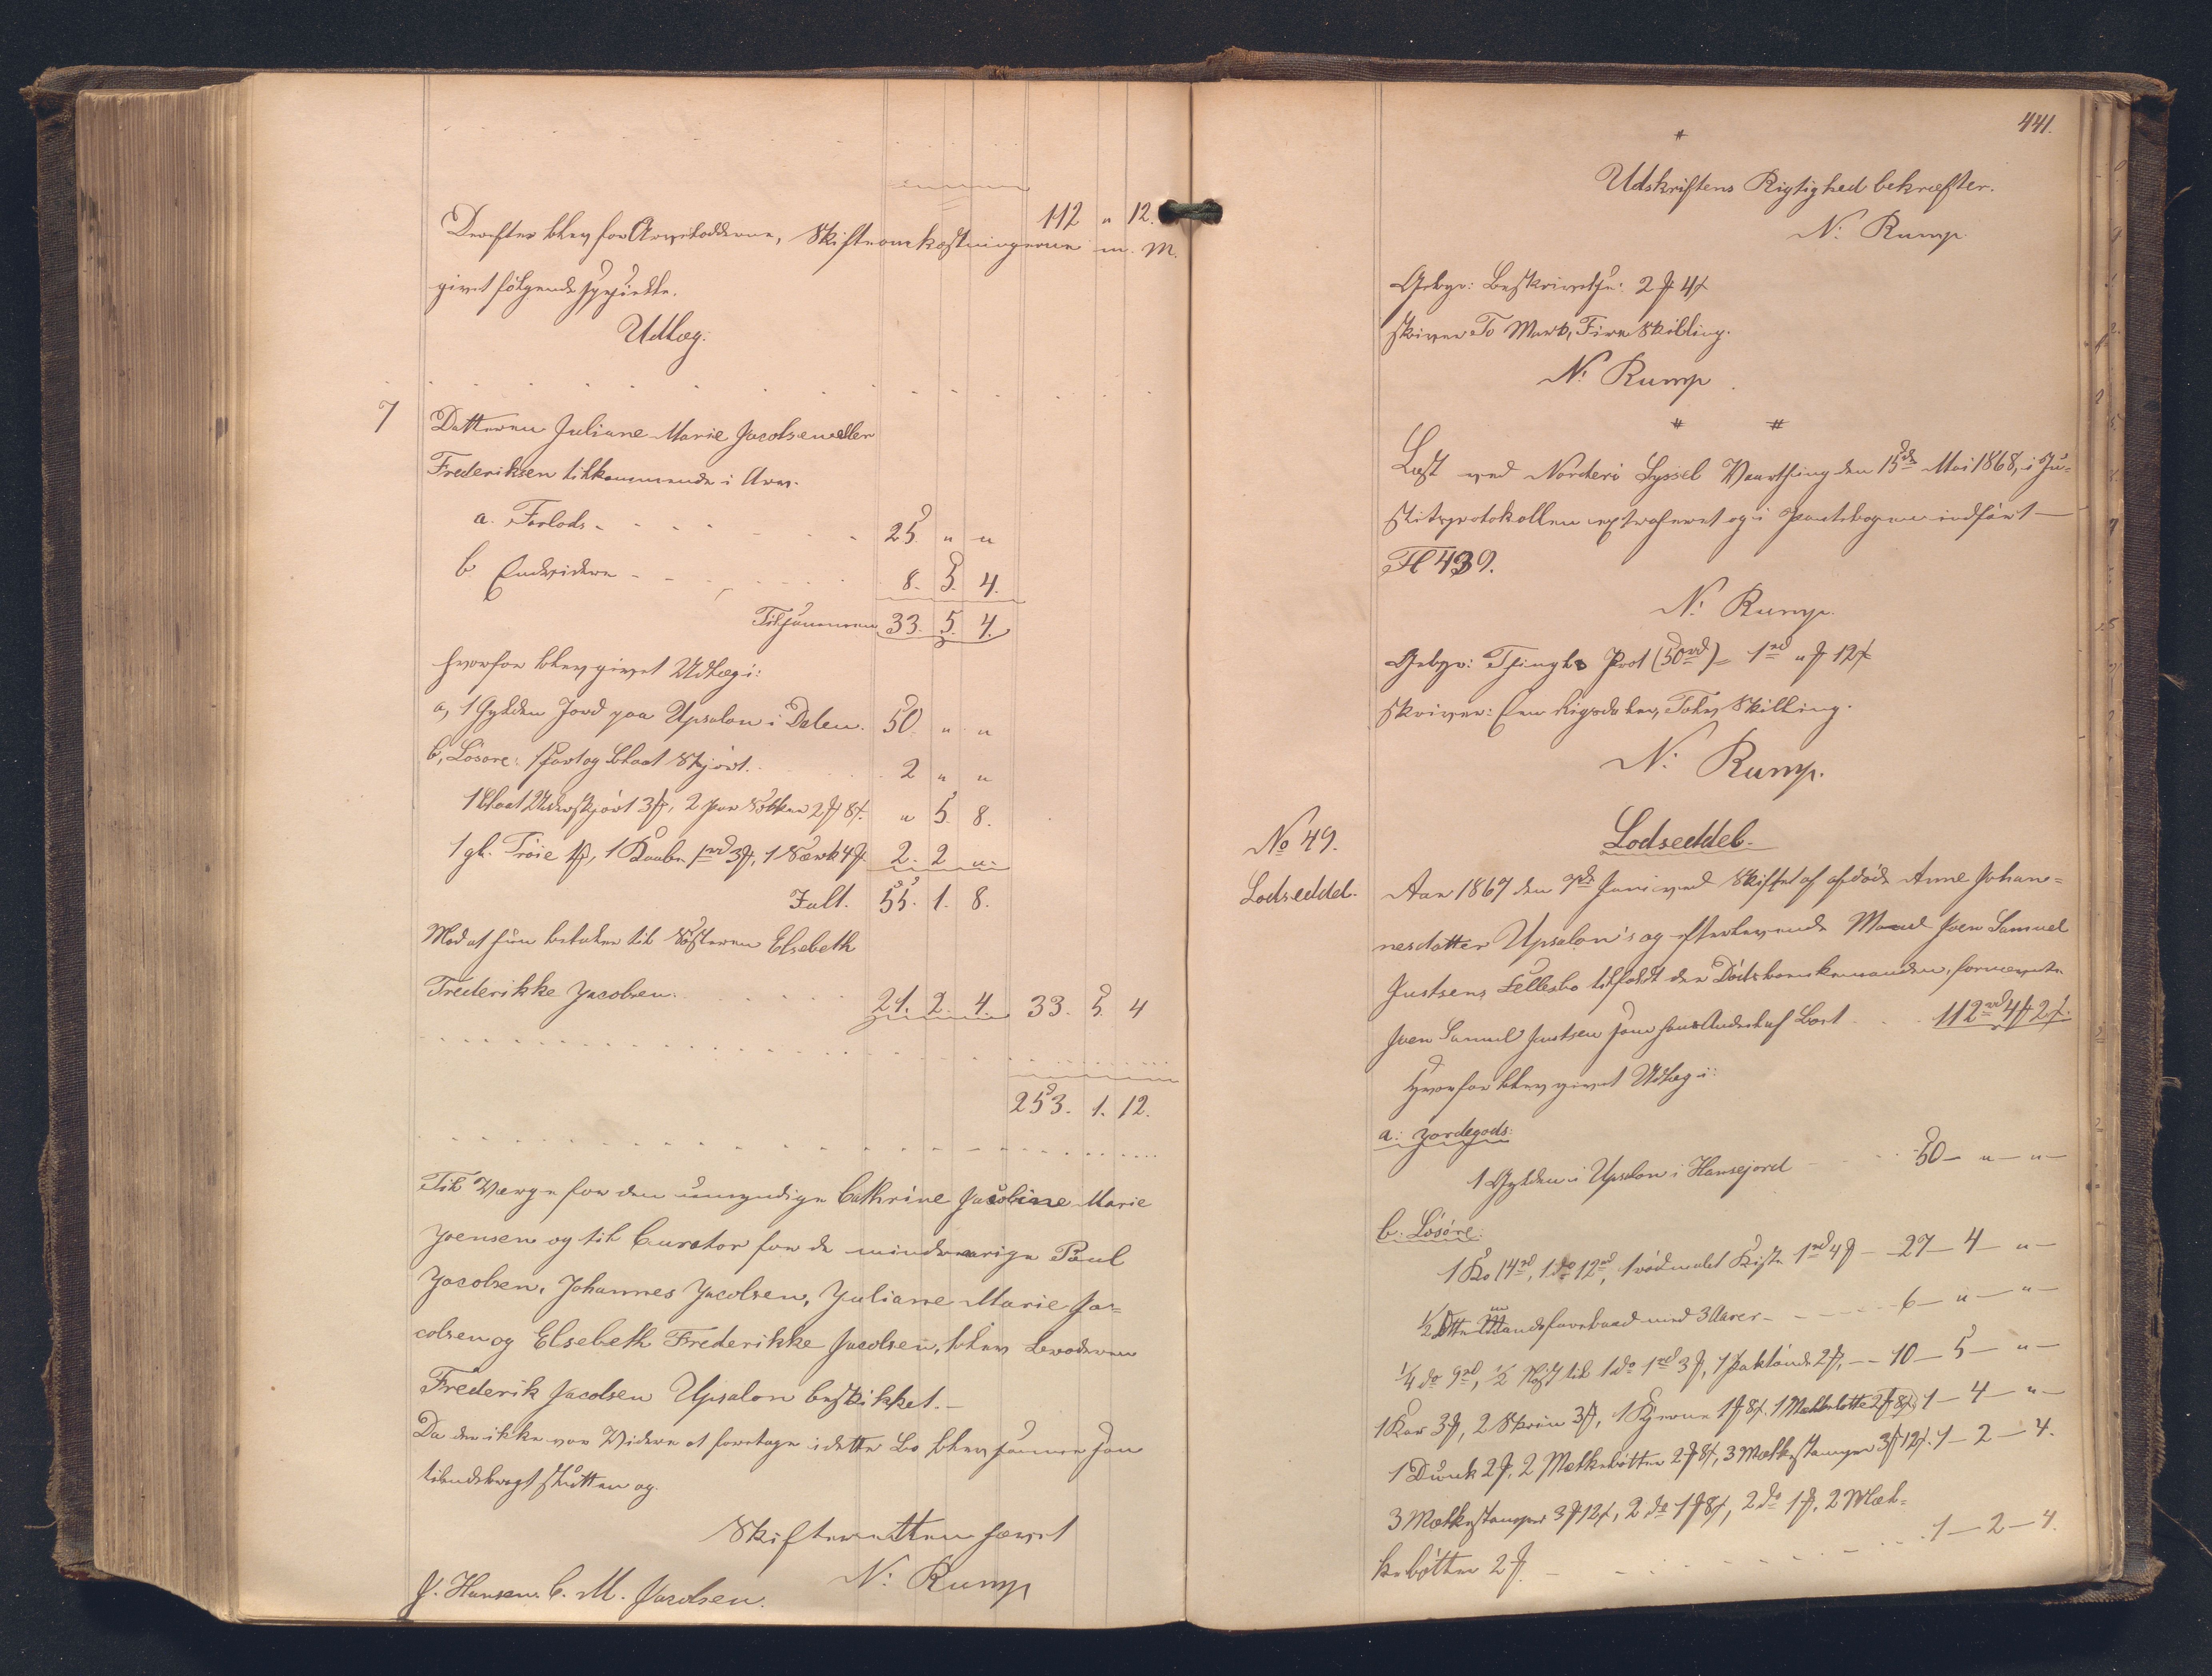 112 " 12.
Derefter blev for Arvelodderne, Skifteomkostningerne m. M.
givet følgende specielle.
Udlæg.
7 Datteren Juliane Marie Jacobsen eller
Frederiksen tilkommende i Arv.
a. Forlods - - - - 25. " "
b. Endvidere - - - 8. 5. 4.
Tilsammen 33. 5. 4.
hvorfor blev givet Udlæg i:
a, 1 Gylden Jord paa Upsalon i Dalen. 50. " "
b, Løsøre: 1 sort og blaat Skjørt. 2 " "
1 blaat Underskjørt 3 ℳ, 2 par Sokker 2 ℳ 8 ß. " 5. 8.
1 gl. Trøie 1 ℳ, 1 Kaabe 1 rd 3 ℳ, 1 Særk 4 ℳ 2. 2 ".
Falt. 55. 1. 8.
Mod at hun betaler til Søsteren Elsebeth
Frederikke Jacobsen. 21. 2. 4. 33. 5. 4
253. 1. 12.
Til Værge for den umyndige Cathrine Jacobine Marie
Joensen og til Curator for de mindreaarige Poul
Jacobsen, Johannes Jacobsen, Juliane Marie Ja-
cobsen og Elsebeth Frederikke Jacobsen, blev Broderen
Frederik Jacobsen Upsalon beskikket. -
Da der ikke var Videre at foretage i dette Bo blev samme som
tilendebragt sluttet og
Skifteretten hævet
N: Rump
J. Hansen. C. M. Jacobsen.
441.
#
Udskriftens Rigtighed bekræfter.
N: Rump.
Gebyr: Beskrivelse: 2 ℳ 4 ß
skriver To Mark, Fire Skilling.
N: Rump.
# #
Læst ved Norderø Syssel Vaarthing den 15de Mai 1868, i Ju-
stitsprotokollen extraheret og i Pantebogen indført
Fl 439.
N: Rump.
Gebyr: Thingl. Prot (50 rd) = 1 rd " ℳ 12 ß
skriver: Een Rigsdaler, Tolv Skilling.
N: Rump.
No 49.
Lodseddel.
Lodseddel.
Aar 1867 den 7de Juni ved Skiftet af afdøde Anne Johan-
nesdatter Upsalon's og efterlevende Mand Joen Samuel
Justsens Fellesbo tilfaldt der Dødsboenkemanden, fornævnte
Joen Samuel Justsen som hans Andeel af Boet - - 112 rd 4 ℳ 2 ß.
Hvorfor blev givet Udlæg i:
a: Jordegods:
1 Gylden i Upsalon i Hansejord - - - 50 - " - " -
b: Løsøre:
1 Ko 14 rd, 1 do 12 rd, 1 rødmalet Kiste 1 rd 4 ℳ - 27 - 4 - " -
1/2 Otte Mandsfarebaad med 3 Aarer - - - - 6 - " - " -
1/4 do 9 rd, 1/2 til 1 do 1 rd 3 ℳ, 1 2 ℳ, - - 10 - 5 - " -
1 Kar 3 ℳ, 2 Skrin 3 ℳ, 1 Kjerne 1 ℳ 8 ß, 1 Malkebøtte 2 ℳ 8 ß, 1 - 4 - " -
1 Dunk 2 ℳ, 2 Mælkebøtter 2 ℳ 8 ß, 3 Mælkestamper 3 ℳ 12 ß. 1 - 2 - 4.
3 Mælkestamper 3 ℳ 12 ß, 2 do 1 ℳ 8 ß, 2 do 1 ℳ, 2 Mæl-
kebøtter 2 ℳ. - - - - 1 - 2 - 4.